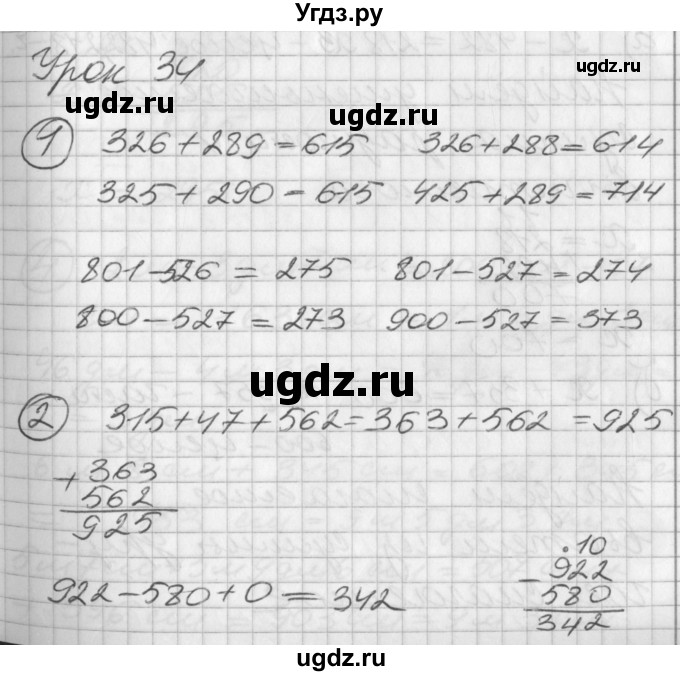 Угдз.ру
Урок 34
ugdz.ru
ugdz.ru
ugdz.ru
1 326+289=615 326+288=614
325+290=615 425+289=714
801-526=275 801-527=274
800-527=273 900-527=373
ugdz.ru
2 315+47+562=363+562=925
+363
562
925
ugdz.ru
ugdz.ru
.10
922-580+0=342 -922
580
342
ugdz.ru